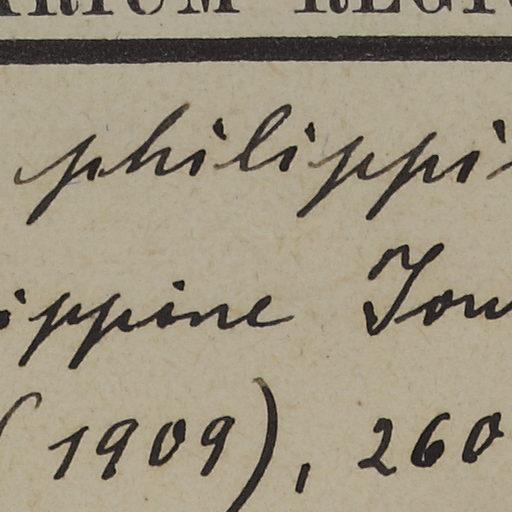 ARIUM REGI
philippi
ippine Jou
(1909), 260